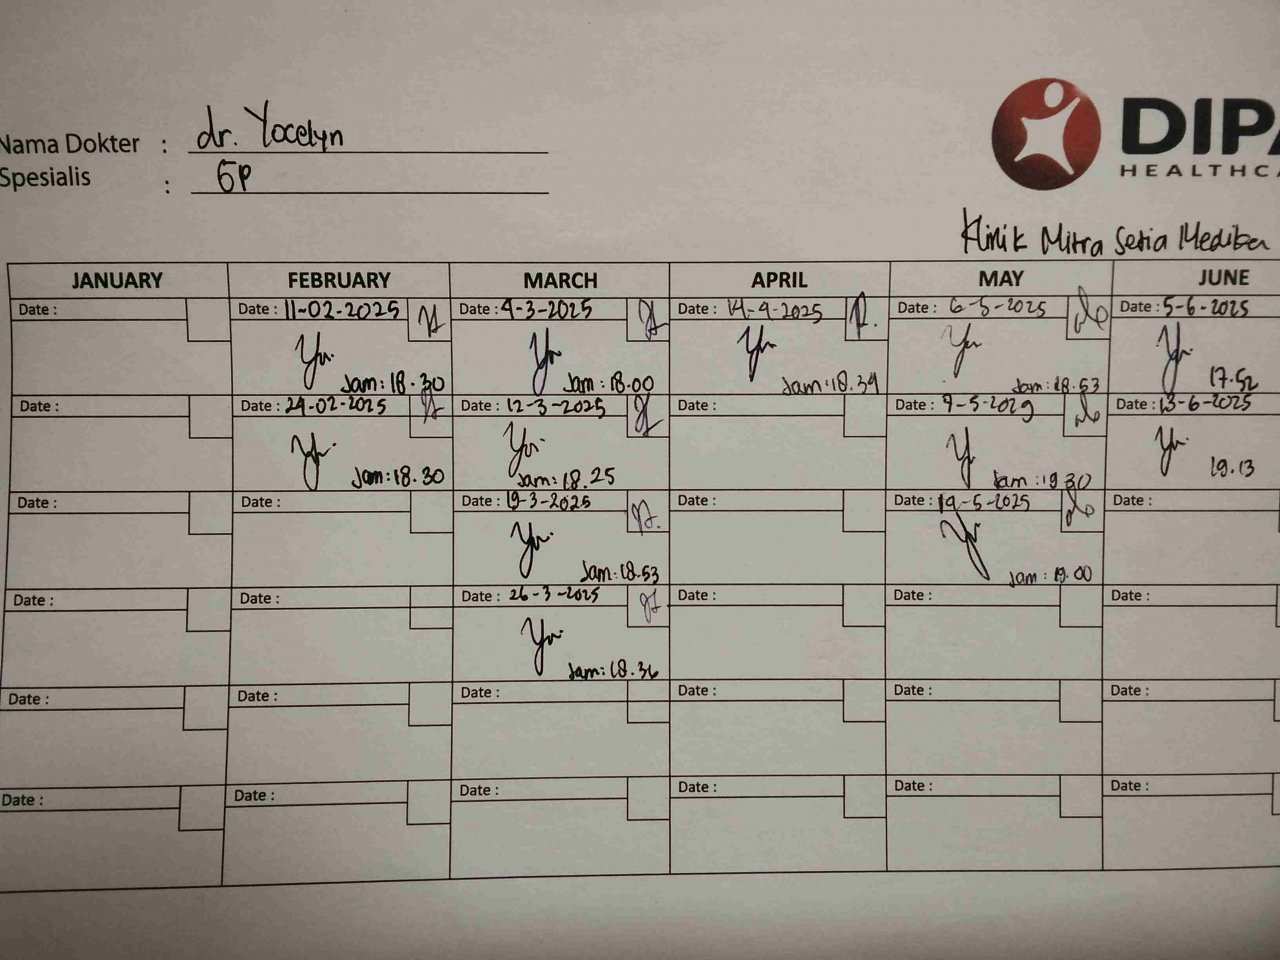 Nama Dokter : dr. Yocelyn
Spesialis : GP
DIPA
HEALTHCA
Klinik Mitra Setia Medika
JANUARY FEBRUARY MARCH APRIL MAY JUNE
Date : Date : 11-02-2025 Date : 4-3-2025 Date : 14-4-2025 Date : 6-5-2025 Date : 5-6-2025
Jam: 18.30 Jam: 18.00 Jam: 18.34 Jam: 18.53 17.52
Date : Date : 24-02-2025 Date : 12-3-2025 Date : Date : 9-5-2025 Date : 13-6-2025
Jam: 18.30 Jam: 18.25 Jam : 19 30 19.13
Date : Date : Date : 19-3-2025 Date : Date : 19-5-2025 Date :
Jam: 18.53 Jam : 19.00
Date : Date : Date : 26-3-2025 Date : Date : Date :
Jam: 18.36
Date : Date : Date : Date : Date : Date :
Date : Date : Date : Date : Date : Date :